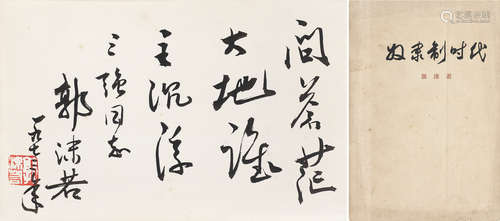 问苍茫
大地谁
主沉浮
三强同志
郭沫若
一九七三年
奴隶制时代
郭沫若